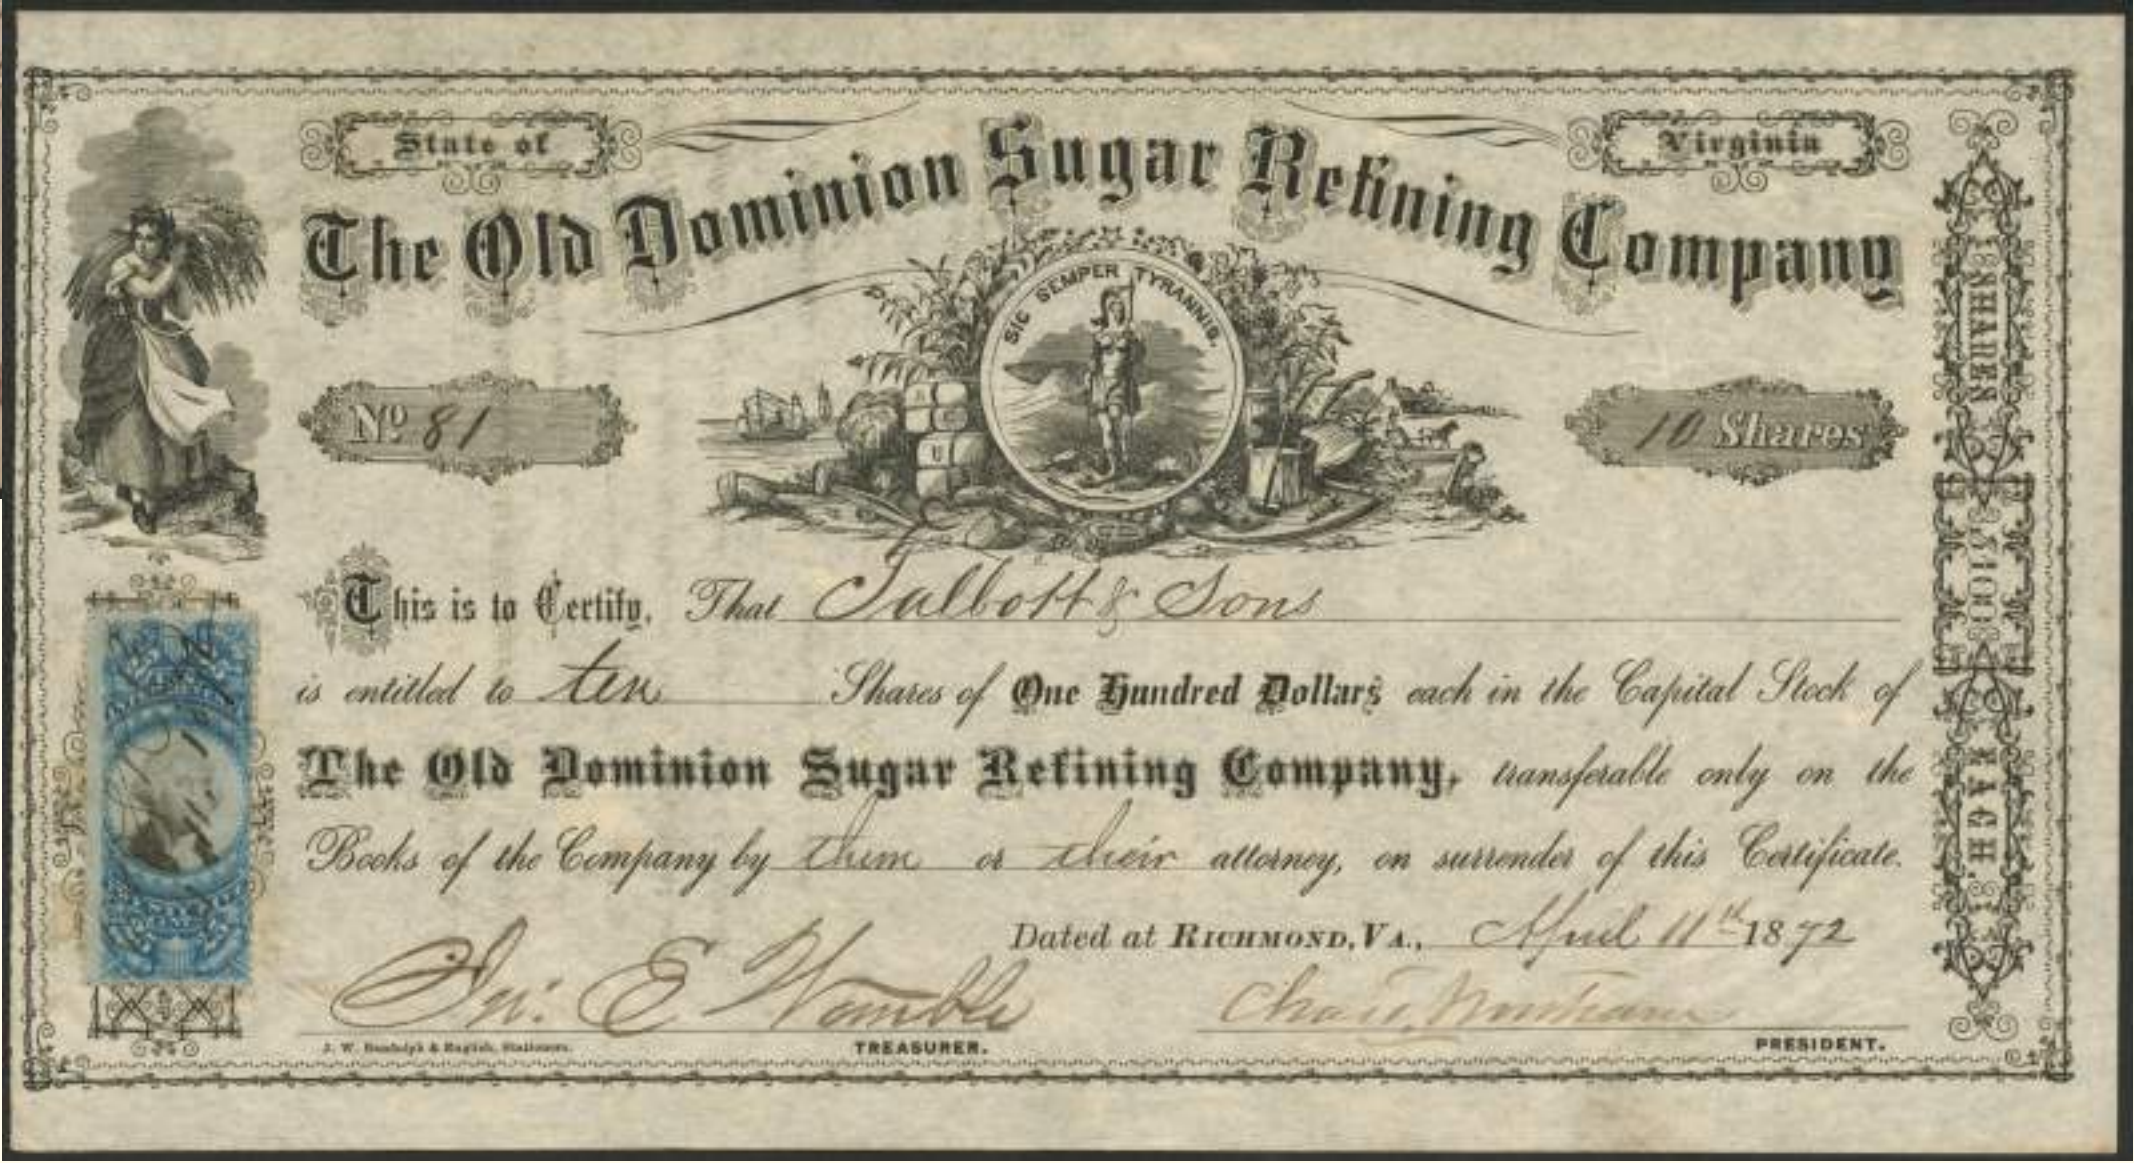 State of
Virginia
The Old Dominion Sugar Refining Company
SIC SEMPER TYRANNIS.
No 81
10 Shares
This is to Certify, That Talbott & Sons
is entitled to ten Shares of One Hundred Dollars each in the Capital Stock of
The Old Dominion Sugar Refining Company, transferable only on the
Books of the Company by them or their attorney, on surrender of this Certificate.
Dated at RICHMOND, VA., April 11th 1872
Jno: E Womble
TREASURER.
PRESIDENT.
J. W. Randolph & English, Stationers.
SHARES
$100
EACH.